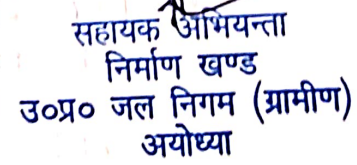 सहायक अभियन्ता
निर्माण खण्ड
उ०प्र० जल निगम (ग्रामीण)
अयोध्या